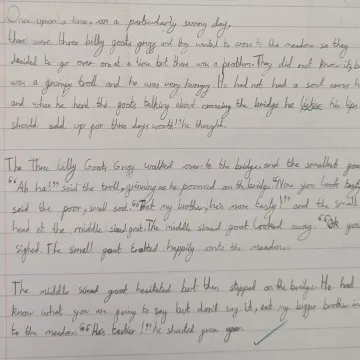 Once upon a time, on a particularly sunny day,
there were three billy goats gruff and they wanted to cross to the meadow so they
decided to go over one at a time but there was a problem. They did not know its
was a grumpy troll and he was very hungry. He had not had a soul cross
and when he heard the goats talking about crossing the bridge he his lips
should add up for three days worth!" he thought.
The Three Billy Goats Gruff walked over to the bridge, and the smallest goat
"Ah ha!" said the troll, grinning as he pounced on the bridge. "Now you look tasty
said the poor, small one. "Eat my brother, he's more tasty!" and the small
head at the middle sized goat. The middle sized goat looked away. "Oh you
sighed. The small goat trotted happily onto the meadow.
The middle sized goat hesitated but then stepped on the bridge. He had
know what you are going to say but don't say it, eat my bigger brother in
to the meadow. "He's tastier!" he shouted